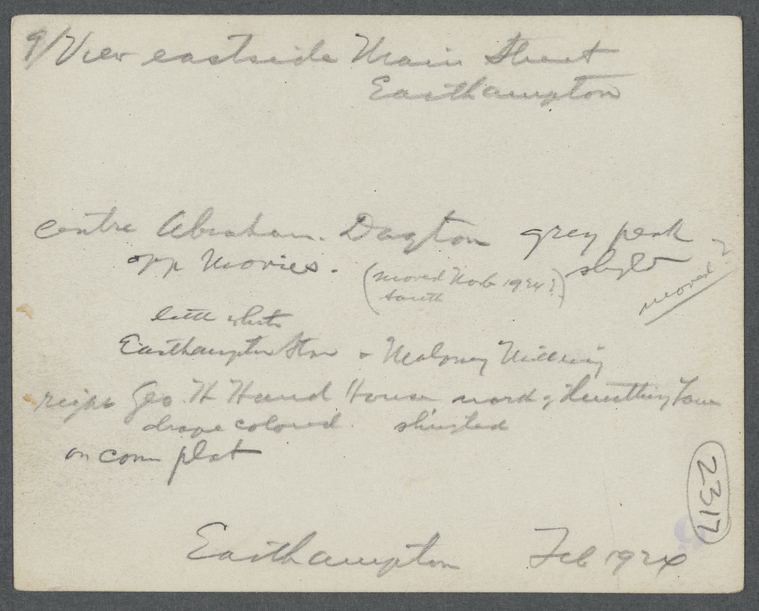 9/View eastside Main Street
Easthampton
centre Abraham. Dayton grey peak
opp Movies. shgld moved?
(moved Nov 1924?)
south
little white
Easthampton Star & Maloney Millinery
right Geo. H Hand House north of Huntting Lane
drape colored. shingled
on corn plat
2317
Easthampton Feb 1924